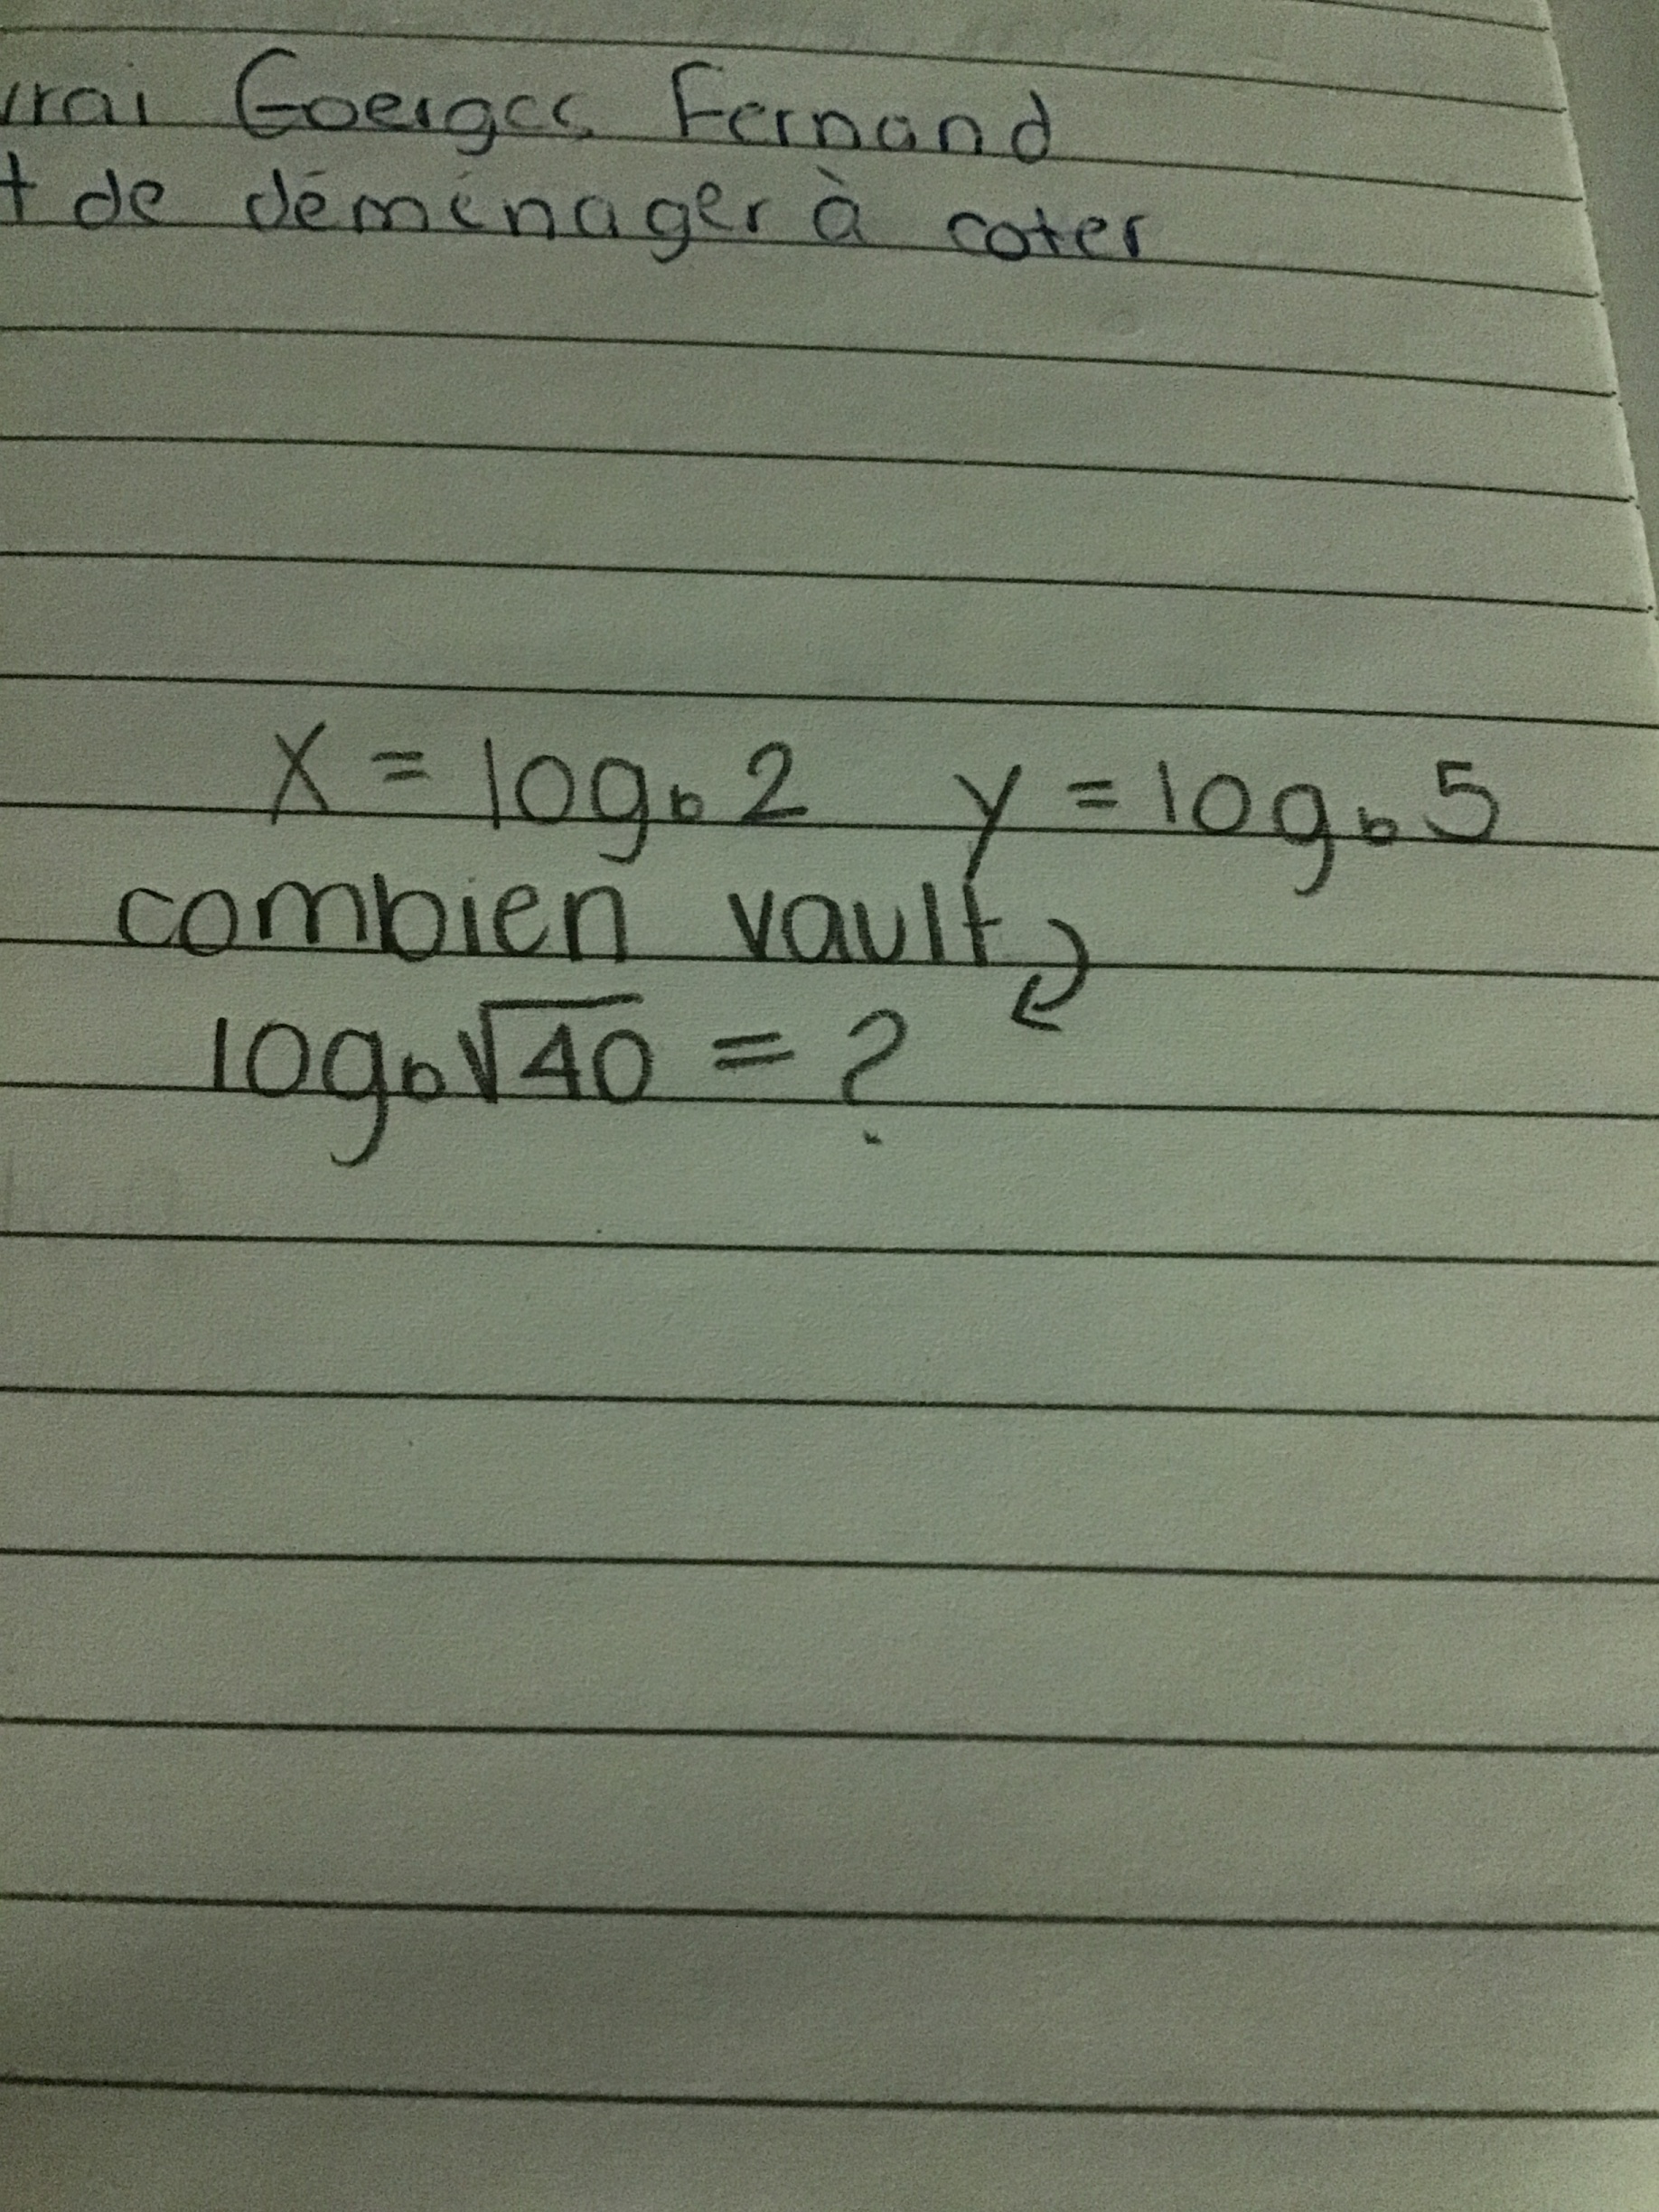 vrai Goerges Fernand
t de déménager à coter
x = log_b 2 y = log_b 5
combien vault
log_b √40 = ?